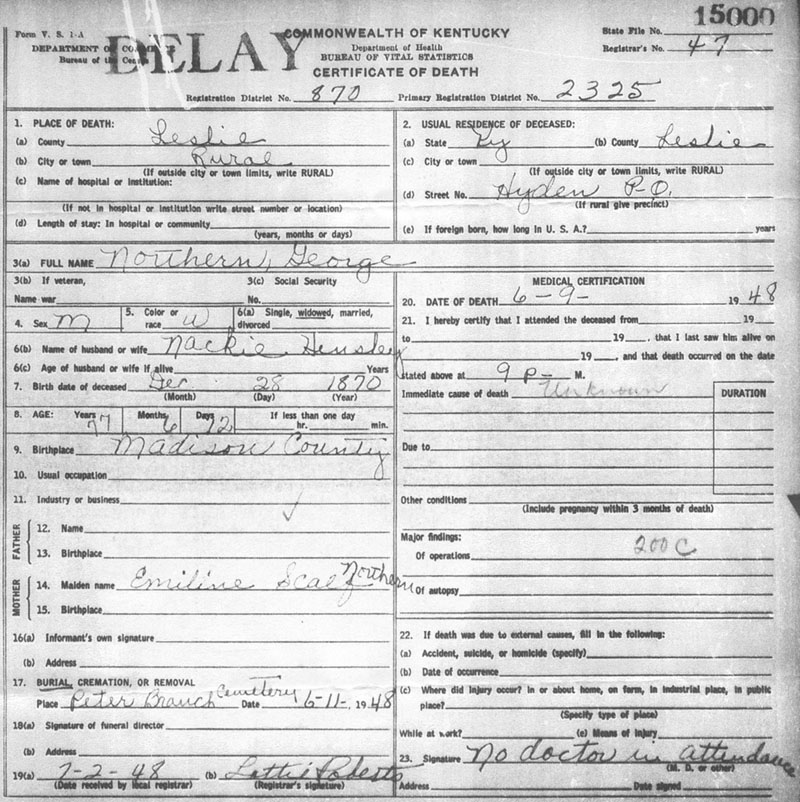 15000
Form V. S. 1-A
COMMONWEALTH OF KENTUCKY
State File No.
DEPARTMENT OF COMMERCE
Department of Health
Registrar's No. 47
Bureau of the Census
BUREAU OF VITAL STATISTICS
DELAY
CERTIFICATE OF DEATH
Registration District No. 870 Primary Registration District No. 2325
1. PLACE OF DEATH:
(a) County Leslie
(b) City or town Rural
(If outside city or town limits, write RURAL)
(c) Name of hospital or institution:
(If not in hospital or institution write street number or location)
(d) Length of stay: In hospital or community
(years, months or days)
2. USUAL RESIDENCE OF DECEASED:
(a) State Ky (b) County Leslie
(c) City or town
(If outside city or town limits, write RURAL)
(d) Street No. Hyden P-O.
(If rural give precinct)
(e) If foreign born, how long in U. S. A.? years
3(a) FULL NAME Northern, George
3(b) If veteran, 3(c) Social Security
Name war No.
4. Sex M 5. Color or race W 6(a) Single, widowed, married, divorced
6(b) Name of husband or wife Nackie Hensley
6(c) Age of husband or wife if alive Years
7. Birth date of deceased Dec 28 1870
(Month) (Day) (Year)
8. AGE: Years 77 Months 6 Days 12 If less than one day hr. min.
9. Birthplace Madison County
10. Usual occupation
11. Industry or business
FATHER
12. Name
13. Birthplace
MOTHER
14. Maiden name Emiline Northern
15. Birthplace
16(a) Informant's own signature
(b) Address
17. BURIAL, CREMATION, OR REMOVAL
Place Peter Branch Cemetery Date 6-11, 1948
18(a) Signature of funeral director
(b) Address
19(a) 7-2-48 (b) Lottie Roberts
(Date received by local registrar) (Registrar's signature)
MEDICAL CERTIFICATION
20. DATE OF DEATH 6-9- 1948
21. I hereby certify that I attended the deceased from 19
to 19 , that I last saw him alive on
19 , and that death occurred on the date
stated above at 9 P- M.
Immediate cause of death Unknown
DURATION
Due to
Other conditions
(Include pregnancy within 3 months of death)
Major findings:
Of operations 200 C
Of autopsy
22. If death was due to external causes, fill in the following:
(a) Accident, suicide, or homicide (specify)
(b) Date of occurrence
(c) Where did injury occur? In or about home, on farm, in industrial place, in public
place?
(Specify type of place)
While at work? (e) Means of injury
23. Signature No doctor in attendance
(M. D. or other)
Address Date signed